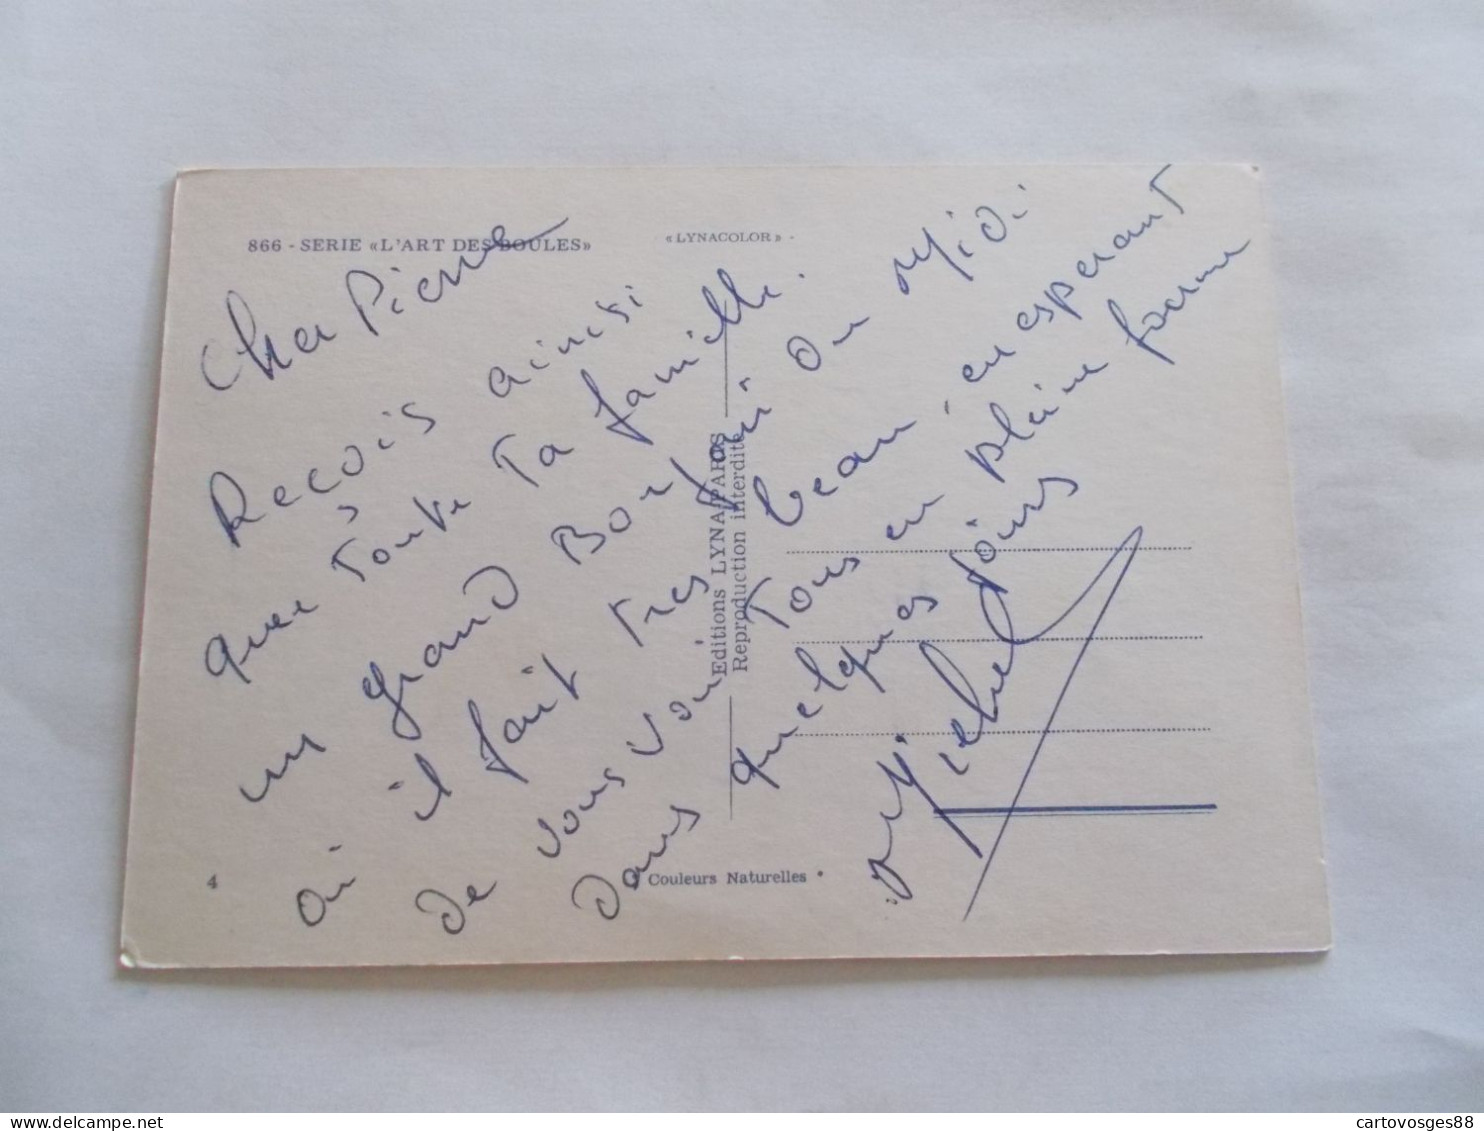 866 - SERIE «L'ART DES BOULES»
«LYNACOLOR» -
Cher Pierre
Recois ainsi
que toute ta famille.
un grand Bonjour du Midi
où il fait tres beau, en esperant
de vous voir tous en pleine forme
dans quelques jours
Michel
Editions LYNA-PARIS
Reproduction interdite
4
Couleurs Naturelles
cartovosges88